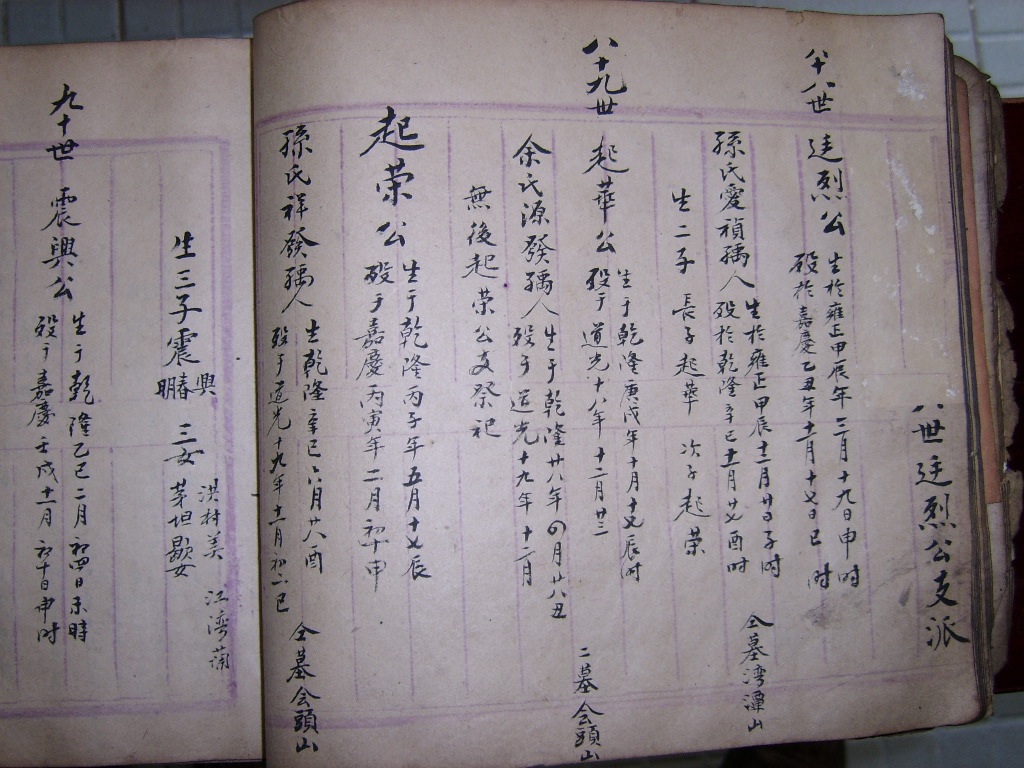 八世廷烈公支派
八十八世 廷烈公 生於雍正甲辰年三月十九日申时
殁於嘉慶乙丑年十二月十七日巳时
孫氏愛禎孺人 生於雍正甲辰十二月廿日子时
殁於乾隆辛巳十二月廿七酉时
仝墓湾潭山
生二子 長子起華 次子起荣
八十九世 起華公 生于乾隆庚戌年十月十七辰时
殁于道光十八年十二月廿三
余氏源發孺人 生于乾隆廿八年四月廿八丑
殁于道光十九年十二月
二墓会頭山
無後起荣公支祭祀
起荣公 生于乾隆丙子年五月十七辰
殁于嘉慶丙寅年二月初十申
孫氏祥發孺人 生乾隆辛巳六月廿八酉
殁于道光十九年十二月初六巳
仝墓会頭山
生三子震興
春
明 三女 洪村美 江湾
茅坦歇
九十世 震興公 生于乾隆乙巳二月初四日未時
殁于嘉慶壬戌十一月初十日申时